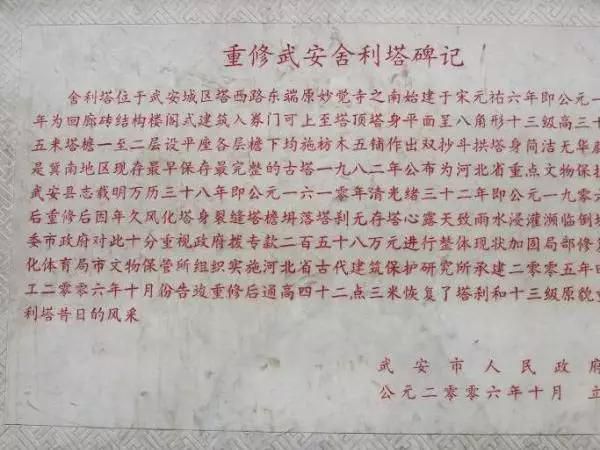 重修武安舍利塔碑记
舍利塔位于武安城区塔西路东端原妙觉寺之南始建于宋元祐六年即公元一
年为回廊砖结构楼阁式建筑入券门可上至塔顶塔身平面呈八角形十三级高三十
五米塔檐一至二层设平座各层檐下均施枋木五铺作出双抄斗拱塔身简洁无华
是冀南地区现存最早保存最完整的古塔一九八二年公布为河北省重点文物保
武安县志载明万历三十八年即公元一六一〇年清光绪三十二年即公元一九〇六
后重修后因年久风化塔身裂缝塔檐坍落塔刹无存塔心露天致雨水浸灌濒临倒
委市政府对此十分重视政府拨专款二百五十八万元进行整体现状加固局部修
化体育局市文物保管所组织实施河北省古代建筑保护研究所承建二〇〇五年
工二〇〇六年十月份告竣重修后通高四十二点三米恢复了塔利和十三级原貌
利塔昔日的风采
武安市人民政府
公元二〇〇六年十月 立